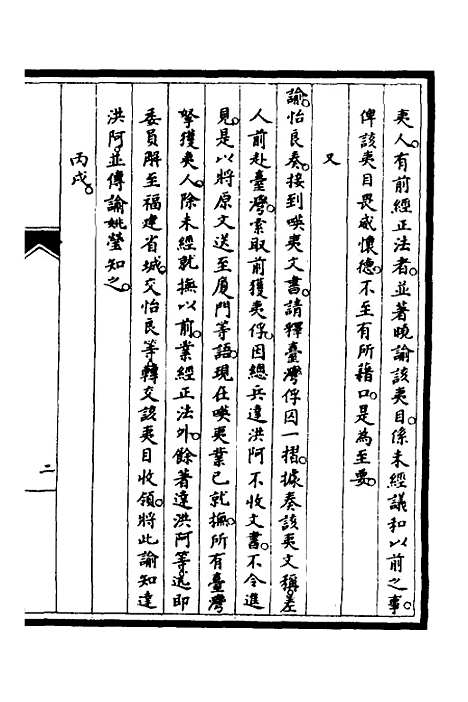 夷人。有前經正法者。並著曉諭該夷目。係未經議和以前之事。
俾該夷目畏威懷德。不至有所藉口。是為至要。
又
諭。怡良奏。接到嘆夷文書。請釋臺灣俘囚一摺。據奏該夷文稱。差
人前赴臺灣。索取前獲夷俘。因總兵達洪阿不收文書。不令進
見。是以將原文送至厦門等語。現在嘆夷業已就撫。所有臺灣
拏獲夷人。除未經就撫以前。業經正法外。餘著達洪阿等。迅即
委員解至福建省城。交怡良等。轉交該夷目收領。將此諭知達
洪阿。並傳諭姚瑩知之。
丙戌。
二